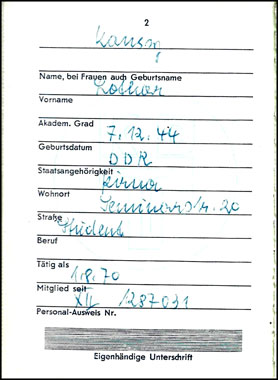 2
Name, bei Frauen auch Geburtsname
Lothar
Vorname
Akadem. Grad
7.12.44
Geburtsdatum
DDR
Staatsangehörigkeit
Pirna
Wohnort
Seminarstr. 20
Straße
Student
Beruf
Tätig als
1.9.70
Mitglied seit
XII 1287031
Personal-Ausweis Nr.
Eigenhändige Unterschrift